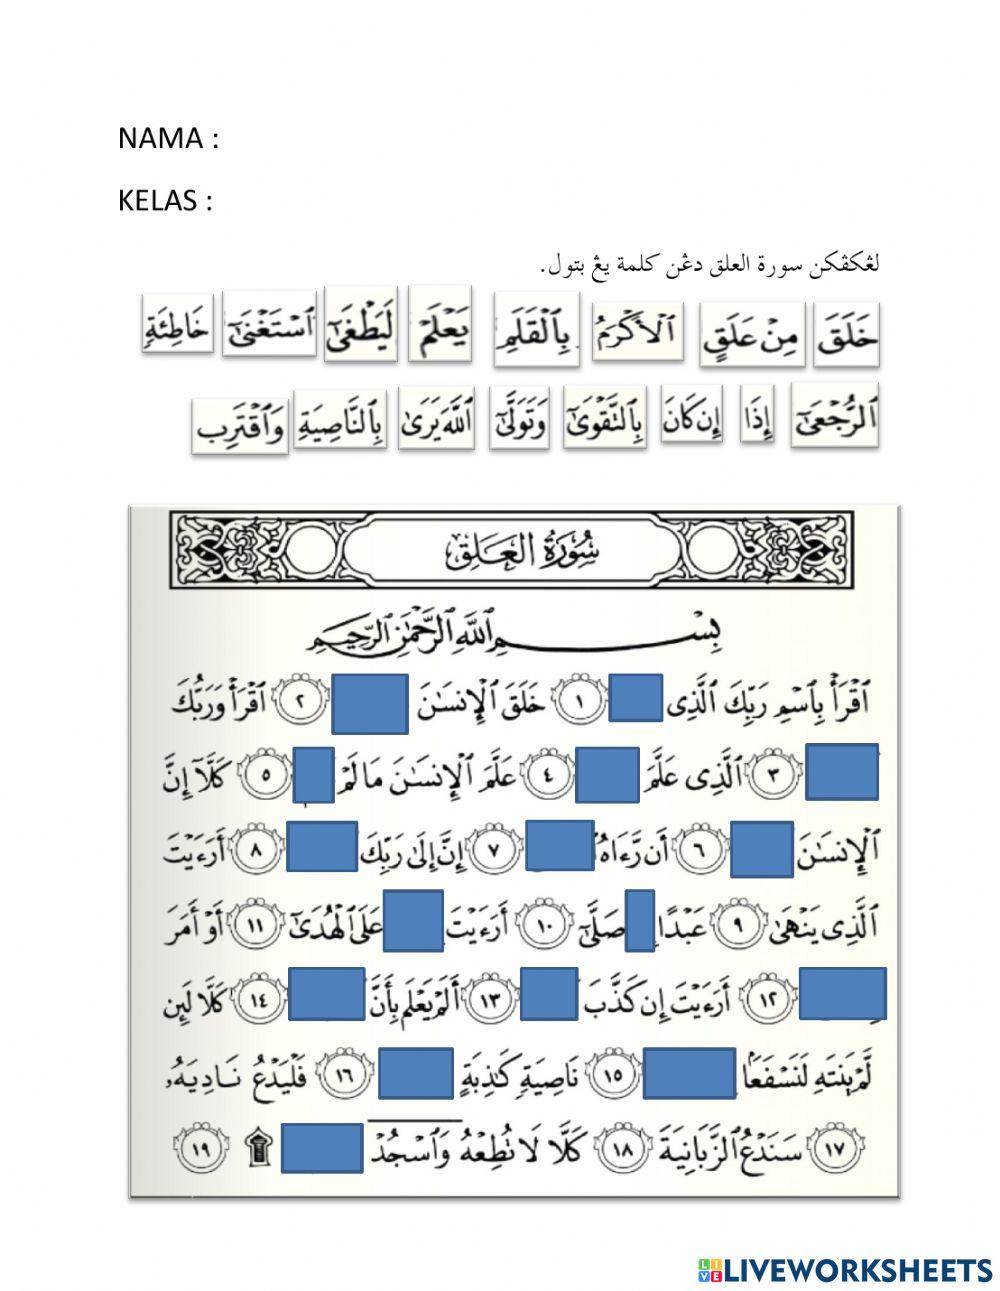 NAMA :
KELAS :
لڠكڤكن سورة العلق دڠن كلمة يڠ بتول.
خَلَقَ مِنْ عَلَقٍ ٱلْأَكْرَمُ بِٱلْقَلَمِ يَعْلَمْ لَيَطْغَىٰٓ ٱسْتَغْنَىٰٓ خَاطِئَةٍ
ٱلرُّجْعَىٰٓ إِذَا إِن كَانَ بِٱلتَّقْوَىٰٓ وَتَوَلَّىٰٓ ٱللَّهَ يَرَىٰ بِٱلنَّاصِيَةِ وَٱقْتَرِب
سُورَةُ العَلَق
بِسْمِ ٱللَّهِ ٱلرَّحْمَٰنِ ٱلرَّحِيمِ
ٱقْرَأْ بِٱسْمِ رَبِّكَ ٱلَّذِى ١ خَلَقَ ٱلْإِنسَٰنَ ٢ ٱقْرَأْ وَرَبُّكَ
٣ ٱلَّذِى عَلَّمَ ٤ عَلَّمَ ٱلْإِنسَٰنَ مَا لَمْ ٥ كَلَّآ إِنَّ
ٱلْإِنسَٰنَ ٦ أَن رَّءَاهُ ٧ إِنَّ إِلَىٰ رَبِّكَ ٨ أَرَءَيْتَ
ٱلَّذِى يَنْهَىٰ ٩ عَبْدًا صَلَّىٰٓ ١٠ أَرَءَيْتَ عَلَى ٱلْهُدَىٰٓ ١١ أَوْ أَمَرَ
١٢ أَرَءَيْتَ إِن كَذَّبَ ١٣ أَلَمْ يَعْلَم بِأَنَّ ١٤ كَلَّا لَئِن
لَّمْ يَنتَهِ لَنَسْفَعًۢا ١٥ نَاصِيَةٍ كَٰذِبَةٍ ١٦ فَلْيَدْعُ نَادِيَهُۥ
١٧ سَنَدْعُ ٱلزَّبَانِيَةَ ١٨ كَلَّا لَا تُطِعْهُ وَٱسْجُدْ ۩ ١٩
LIVEWORKSHEETS